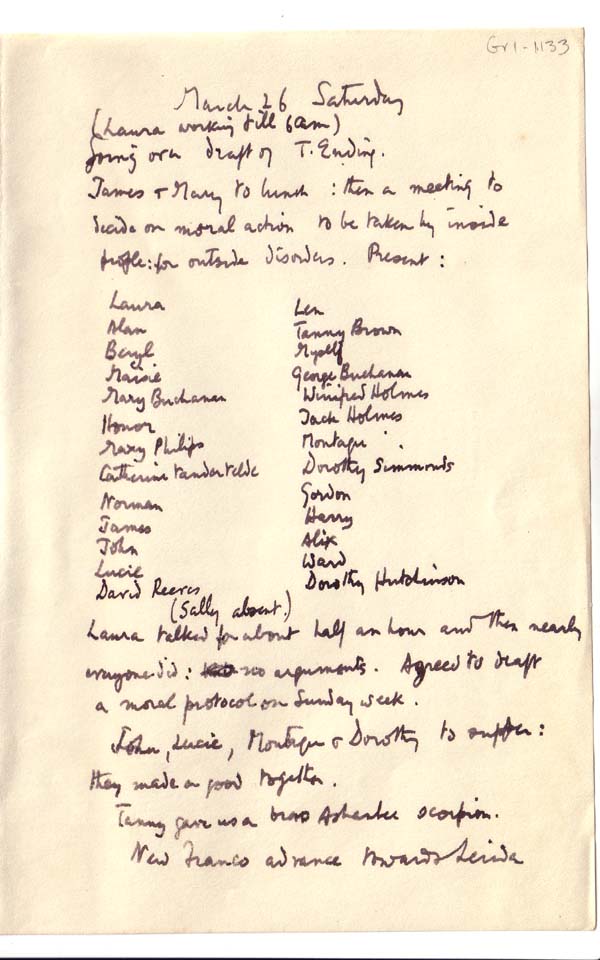 Gr1-1133
March 26 Saturday
(Laura working till 6am)
Going over draft of T. Ending.
James & Mary to lunch : then a meeting to
decide on moral action to be taken by inside
people: for outside disorders. Present :
Laura
Alan
Beryl
Maisie
Mary Buchanan
Honor
Mary Philips
Catherine Vandervelde
Norman
James
John
Lucie
David Reeves
(Sally absent.)
Len
Tanny Brown
Myself
George Buchanan
Winifred Holmes
Jack Holmes
Montagu
Dorothy Simmonds
Gordon
Harry
Alix
Ward
Dorothy Hutchinson
Laura talked for about half an hour and then nearly
everyone did: no arguments. Agreed to draft
a moral protocol on Sunday week.
John, Lucie, Montagu & Dorothy to supper:
they made a good together.
Tanny gave us a brass Ashantee scorpion.
New Franco advance towards Lerida